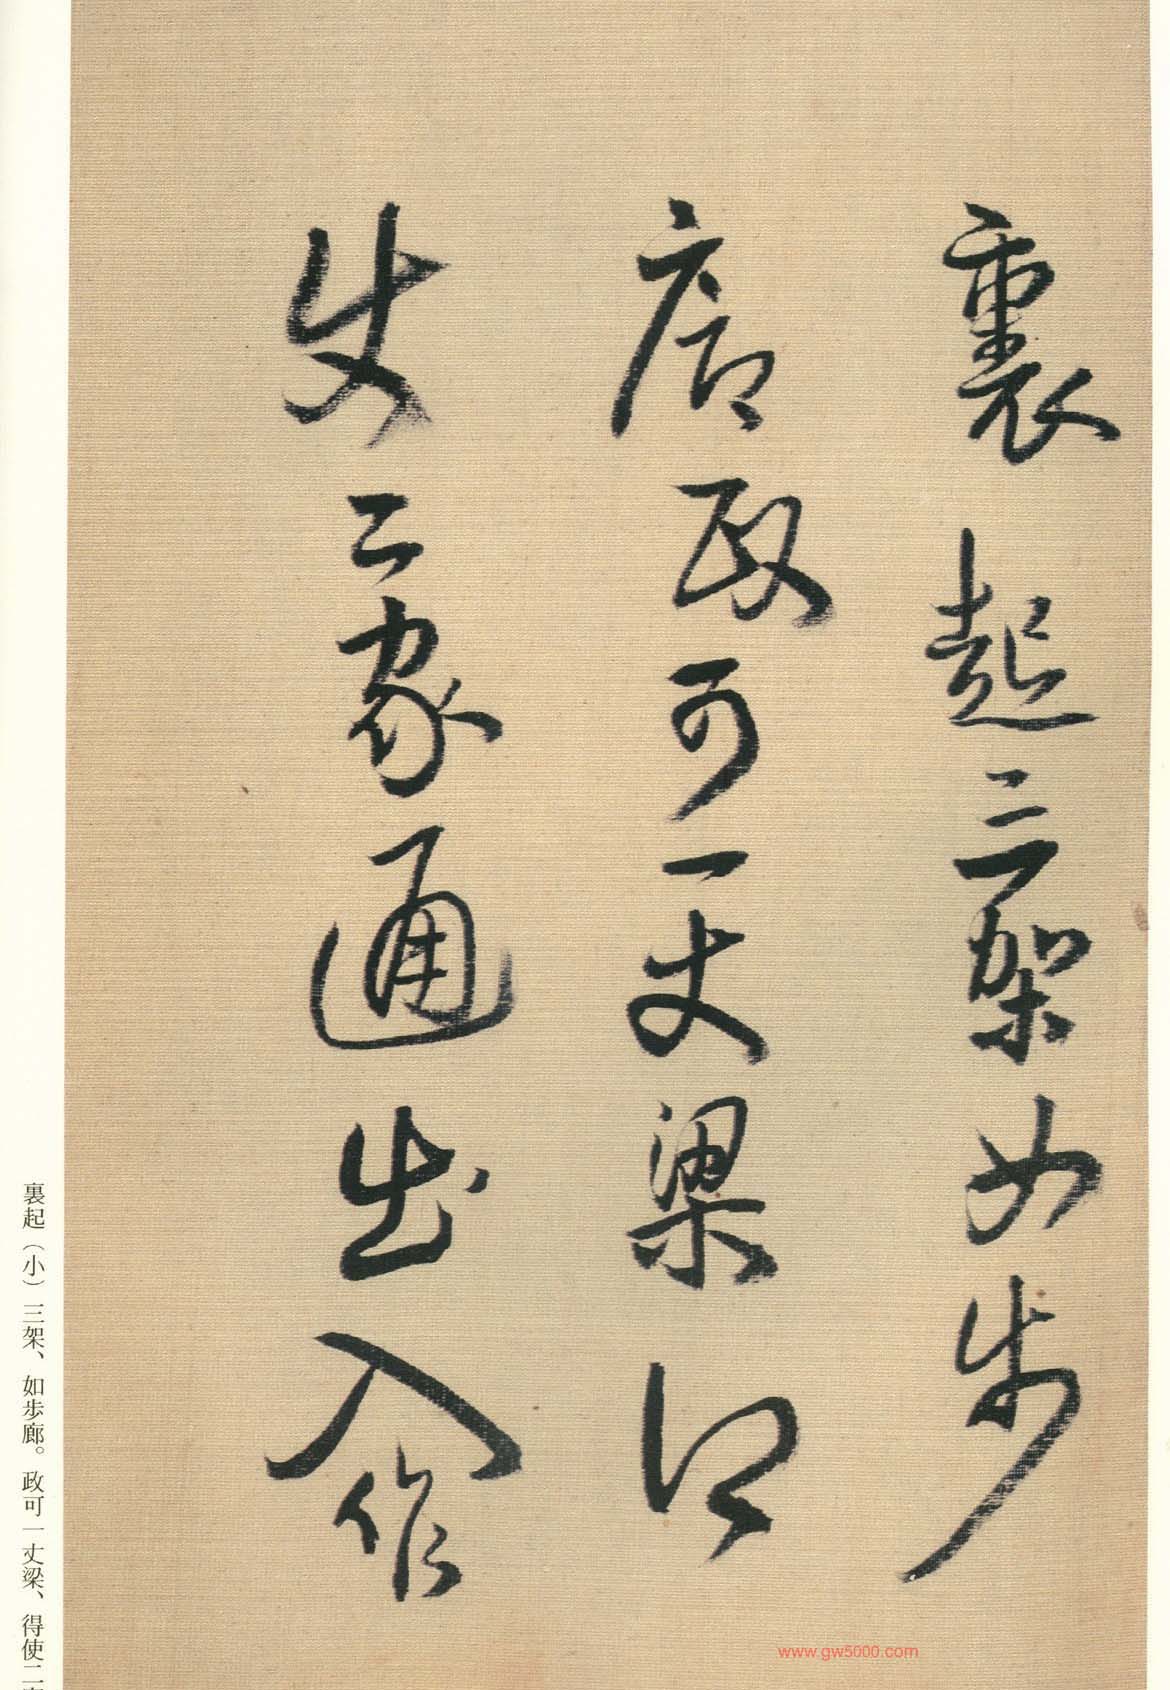 裏起三架如步
廊政可一丈梁得
使二家通出入作
裏起（小）三架、如歩廊。政可一丈梁、得使二
www.gw5000.com